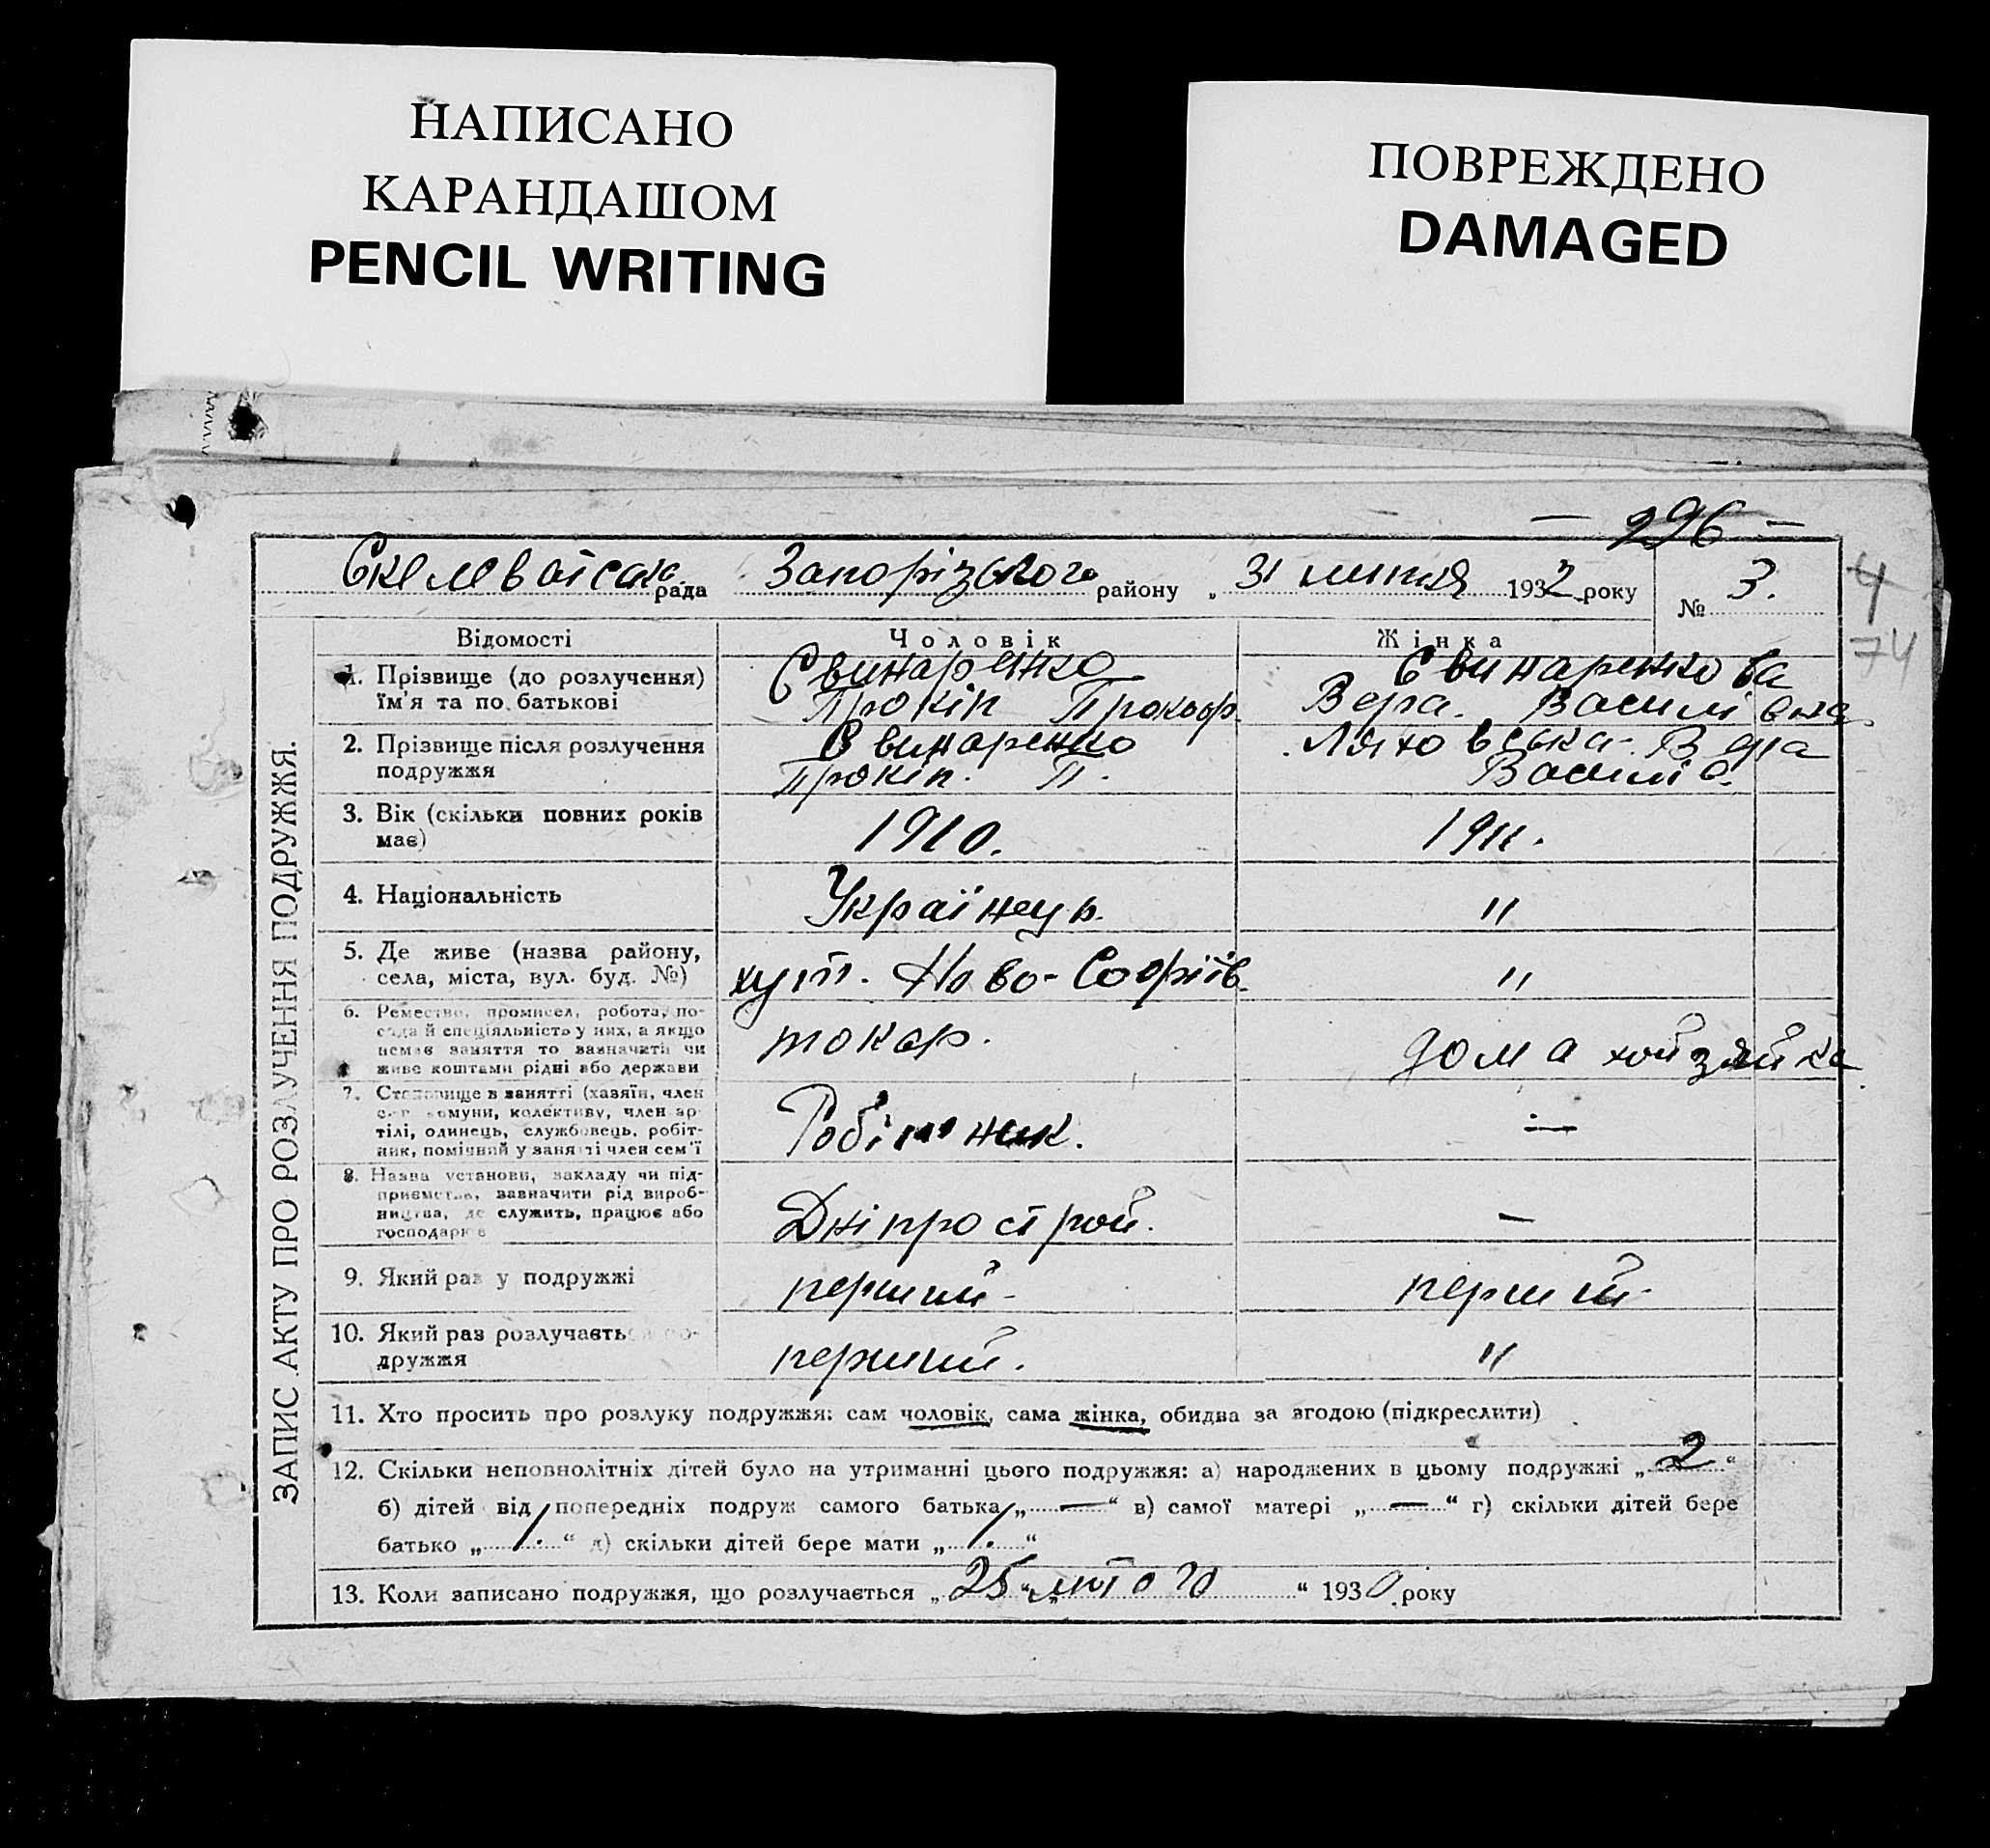 НАПИСАНО
КАРАНДАШОМ
PENCIL WRITING
ПОВРЕЖДЕНО
DAMAGED
— 296 —
рада Запорізького району „ 31 липня 1932 року № 3.
4
74
ЗАПИС АКТУ ПРО РОЗЛУЧЕННЯ ПОДРУЖЖЯ.
Відомості Чоловік Жінка
1. Прізвище (до розлучення) Свинаренко Свинаренкова
їм'я та по батькові Прокіп Прокоф. Вера. Василівна
2. Прізвище після розлучення Свинаренко Ляховська Вера
подружжя Прокіп. П. Василів.
3. Вік (скільки повних років
має) 1910. 1911.
4. Національність Українець. "
5. Де живе (назва району,
села, міста, вул. буд. №) хут. Ново-Софіїв. "
6. Ремество, промисел, робота, по-
сада й спеціяльність у них, а якщо токар.
немає заняття то зазначити чи дома хойзяйка
живе коштами рідні або держави
7. Становище в занятті (хазяїн, член
комуни, колективу, член ар-
тілі, одинець, службовець, робіт- Робітник. —
ник, помічний у занятті член сем'ї
8. Назва установи, закладу чи під-
приємства, зазначити рід вироб-
ництва, де служить, працює або Дніпрострой. —
господарює
9. Який раз у подружжі перший - перший -
10. Який раз розлучається по-
дружжя перший. "
11. Хто просить про розлуку подружжя: сам чоловік, сама жінка, обидва за згодою (підкреслити)
12. Скільки неповнолітніх дітей було на утриманні цього подружжя: а) народжених в цьому подружжі „ 2 “
б) дітей від попередніх подруж самого батька „ — “ в) самої матері „ — “ г) скільки дітей бере
батько „ 1. “ д) скільки дітей бере мати „ 1. “
13. Коли записано подружжя, що розлучається „ 25 “ лютого “ 1930 року